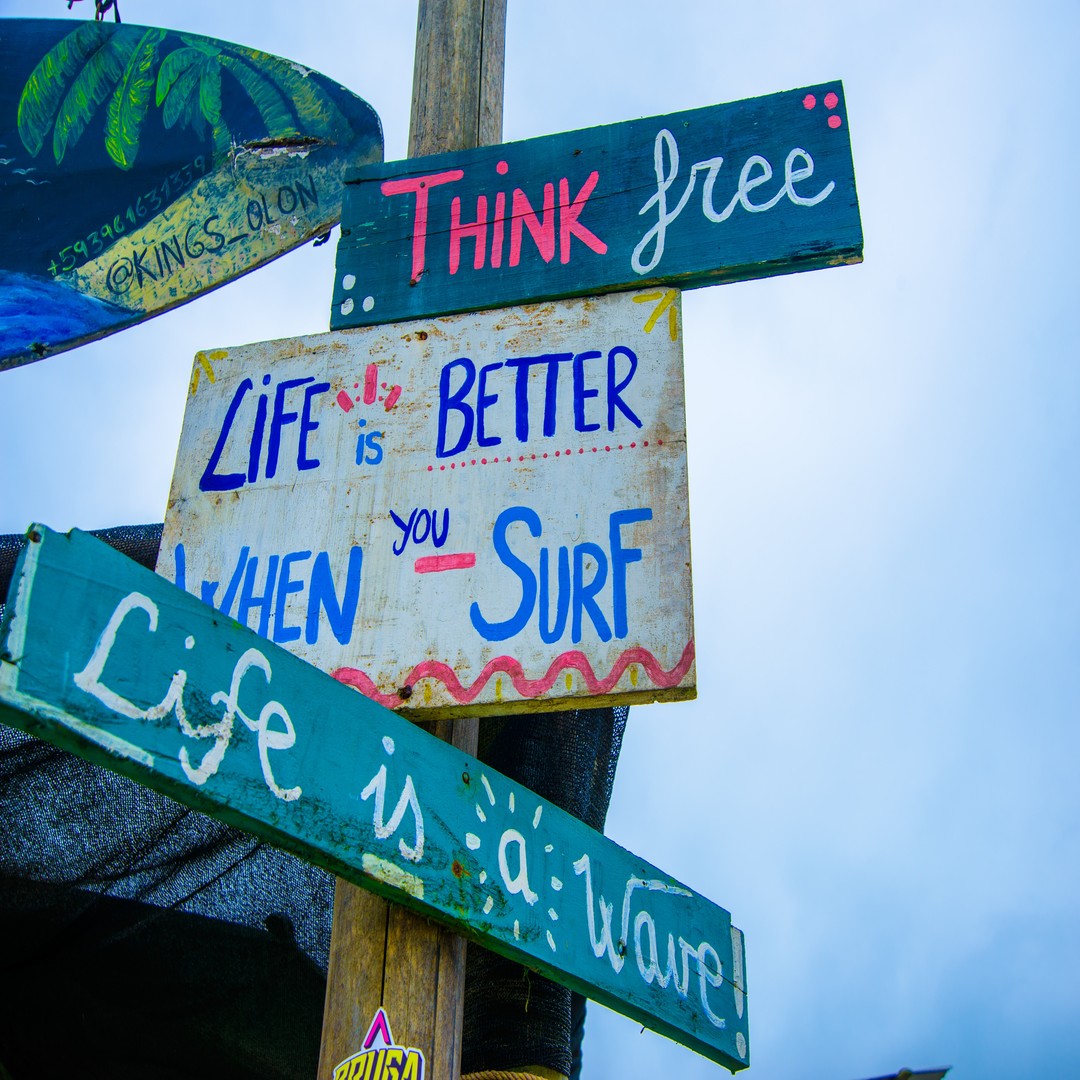 +593961631339
@KINGS_OLON
THiNK free
LiFE is BETTER
WHEN YOU SURF
Life is a Wave!